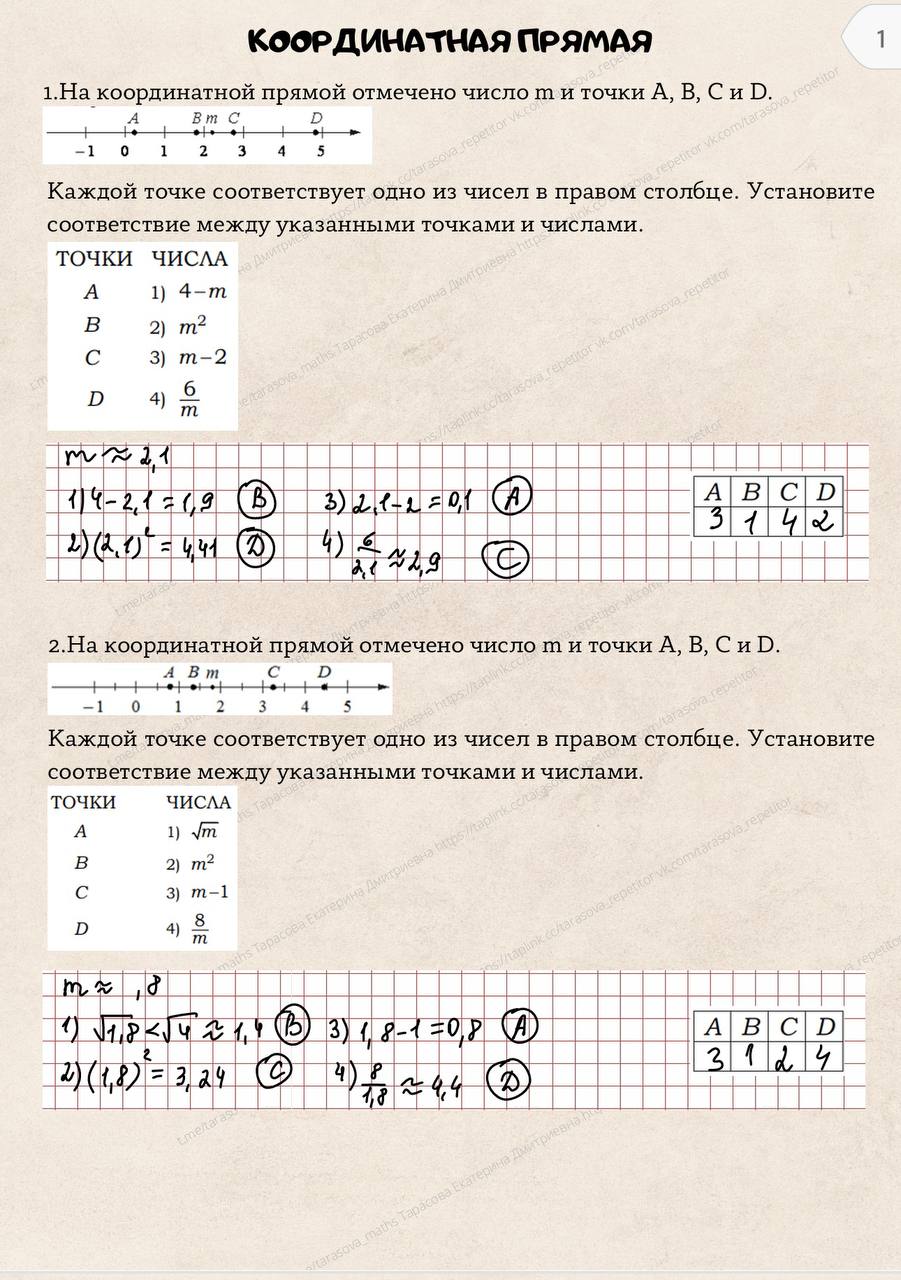 КООРДИНАТНАЯ ПРЯМАЯ
1
1.На координатной прямой отмечено число m и точки A, B, C и D.
A B m C D
−1 0 1 2 3 4 5
Каждой точке соответствует одно из чисел в правом столбце. Установите
соответствие между указанными точками и числами.
ТОЧКИ ЧИСЛА
A 1) 4−m
B 2) m²
C 3) m−2
D 4) 6/m
m ≈ 2,1
1) 4−2,1 = 1,9 B 3) 2,1−2 = 0,1 A
2) (2,1)² = 4,41 D 4) 6/2,1 ≈ 2,9 C
A B C D
3 1 4 2
2.На координатной прямой отмечено число m и точки A, B, C и D.
A B m C D
−1 0 1 2 3 4 5
Каждой точке соответствует одно из чисел в правом столбце. Установите
соответствие между указанными точками и числами.
ТОЧКИ ЧИСЛА
A 1) √m
B 2) m²
C 3) m−1
D 4) 8/m
m ≈ ,8
1) √1,8 < √4 ≈ 1,4 B 3) 1,8−1 = 0,8 A
2) (1,8)² = 3,24 C 4) 8/1,8 ≈ 4,4 D
A B C D
3 1 2 4
t.me/tarasova_maths Тарасова Екатерина Дмитриевна https://taplink.cc/tarasova_repetitor vk.com/tarasova_repetitor